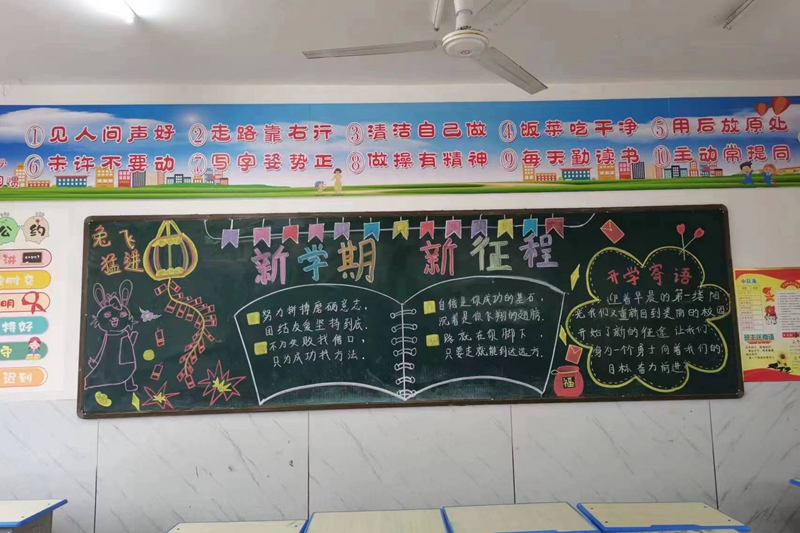 ①见人问声好 ②走路靠右行 ③清洁自己做 ④饭菜吃干净 ⑤用后放原处
⑥未许不要动 ⑦写字姿势正 ⑧做操有精神 ⑨每天勤读书 ⑩主动常提问
公约
讲
明
守
迟到
兔飞
猛进
新学期 新征程
努力拼搏磨砺意志,
团结友爱坚持到底.
不为失败找借口,
只为成功找方法.
自信是你成功的基石,
沉着是你飞翔的翅膀,
路就在你脚下,
只要走就能到达远方.
福
开学寄语
迎着早晨的第一缕阳
光我们又重新回到美丽的校园
开始了新的征途 让我们
身为一个勇士向着我们的
目标奋力前进
班主任寄语